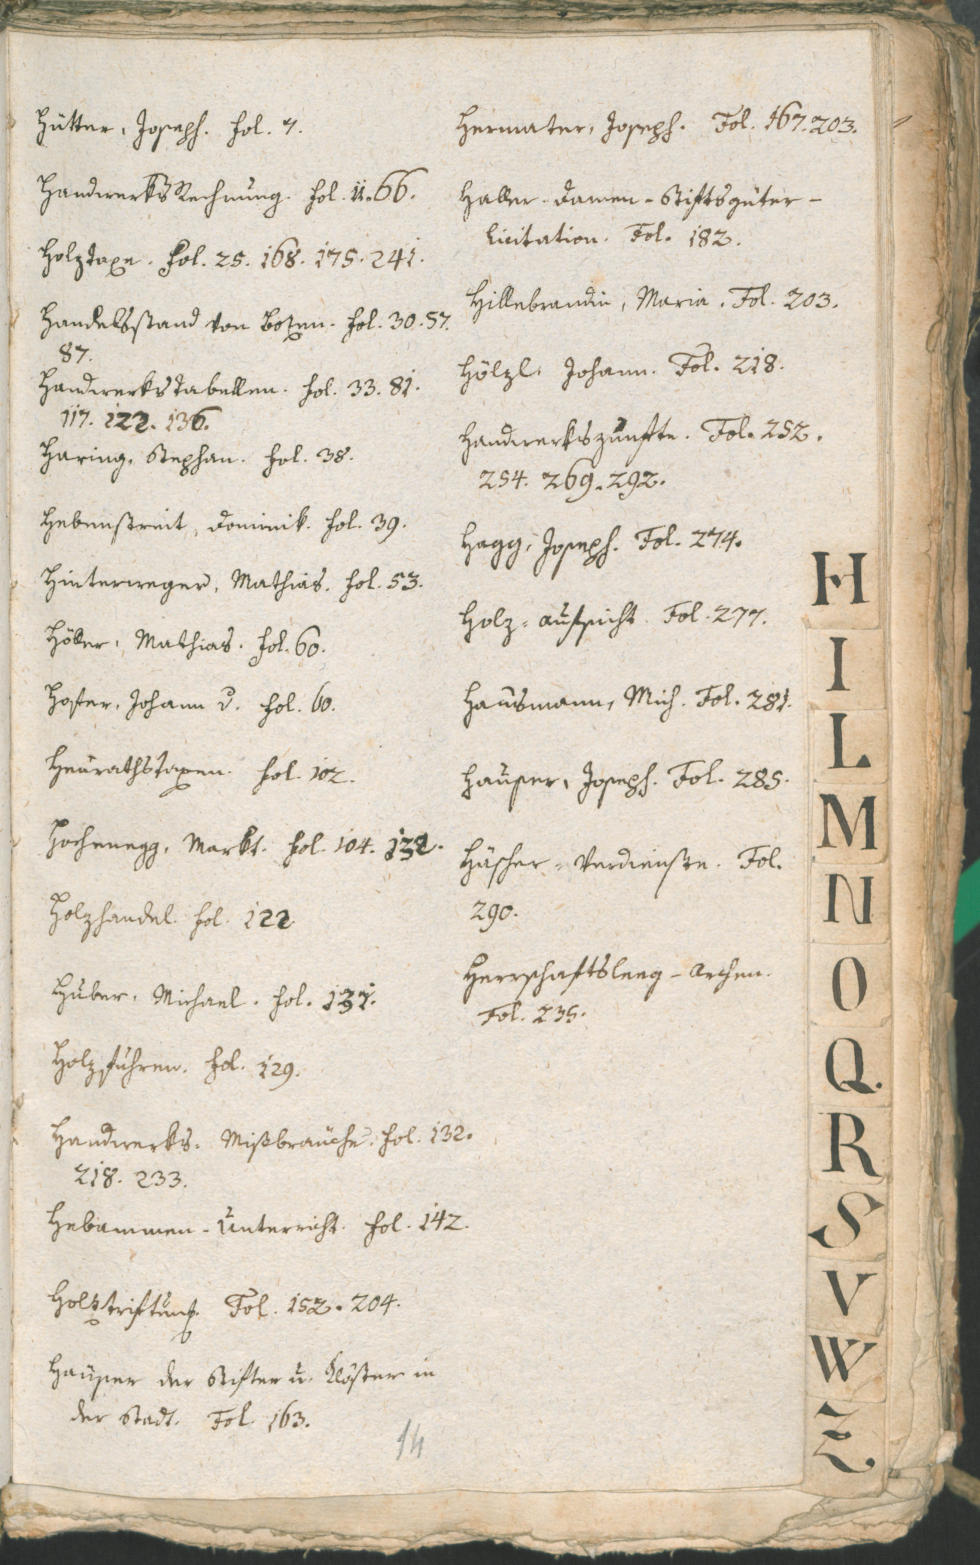 Hütter, Joseph. fol. 7.
Handwerks Rechnung. fol. 11. 66.
Holztaxe. fol. 25. 168. 175. 241.
Handelsstand von Bozen. fol. 30. 57.
87.
Handwerkstabellen. fol. 33. 81.
117. 122. 136.
Haring, Stephan. fol. 38.
Hebenstreit, Dominik. fol. 39.
Hinterweger, Mathias. fol. 53.
Höller, Mathias. fol. 60.
Hofer, Johann fol. 60.
Heurathstaxen. fol. 102.
Hochenegg, Markt. fol. 104. 132.
Holzhandel. fol. 122
Huber, Michael. fol. 131.
Holzführen. fol. 129.
Handwerks-Mißbräuche. fol. 132.
218. 233.
Hebammen-Unterricht. fol. 142.
Holztriftung. Fol. 152. 204.
Häuser der Stifter u. Klöster in
der Stadt. Fol. 163.
14
Hermater, Joseph. Fol. 167. 203.
Haller-Damen-Stiftsgüter-
Licitation. Fol. 182.
Hillebrandin, Maria. Fol. 203.
Hölzl, Johann. Fol. 218.
Handwerkszünfte. Fol. 252.
254. 269. 292.
Hagg, Joseph. Fol. 274.
Holz-Aufsicht. Fol. 277.
Hausmann, Mich. Fol. 281.
Hauser, Joseph. Fol. 285.
Häscher-Verdienste. Fol.
290.
Herrschaftsleeg-Archen.
Fol. 235.
H
I
L
M
N
O
Q.
R
S
V
W
Z.